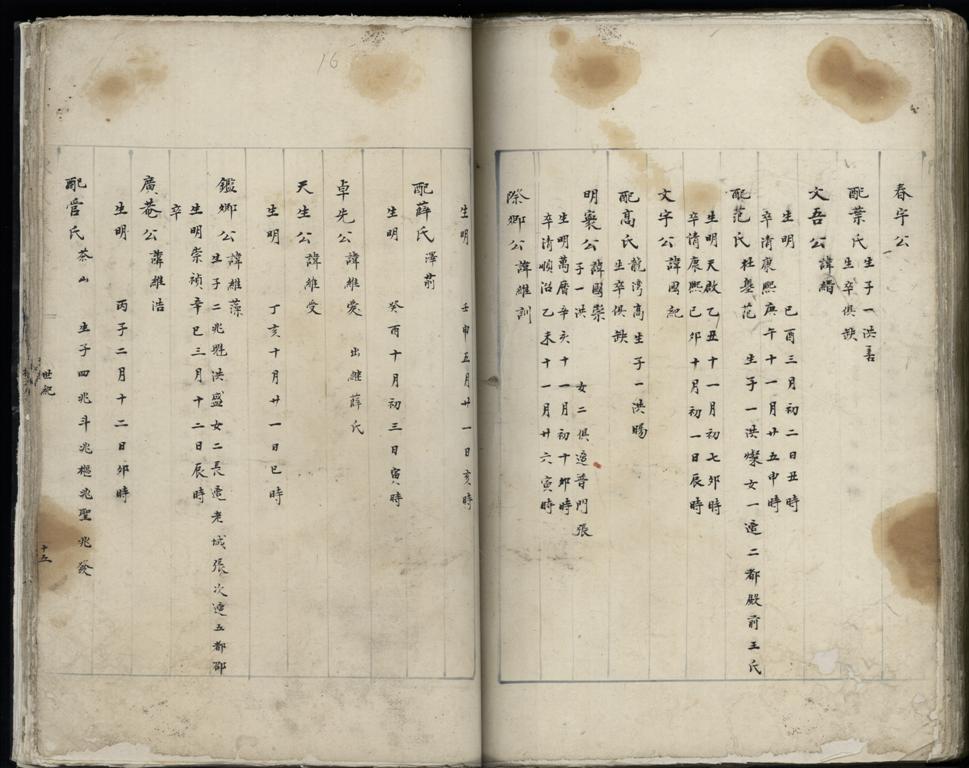 春宇公
配葉氏 生子一洪喜
生卒俱缺
文吾公 諱縉
生明 己酉三月初二日丑時
卒清康熙庚午十一月廿五申時
配范氏 杜墺范 生子一洪燦女一適二都殿前王氏
生明天啟乙丑十一月初七卯時
卒清康熙己卯十月初一日辰時
文宇公 諱國紀
配高氏 龍灣高生子一洪暘
生卒俱缺
明寰公 諱國崇
子一洪 女二俱適普門張
生明萬曆辛亥十一月初十卯時
卒清順治乙未十一月廿六寅時
際卿公 諱維訓
生明 壬申五月廿一日亥時
配薛氏 澤前
生明 癸酉十月初三日寅時
卓先公 諱維愛 出繼薛氏
天生公 諱維受
生明 丁亥十月廿一日巳時
鑑卿公 諱維藻
生子二兆魁洪盛女二長適老城張次適五都邵
生明崇禎辛巳三月十二日辰時
卒
廣菴公 諱維浩
生明 丙子二月十二日卯時
配管氏 茶山 生子四兆斗兆樞兆聖兆發
世紀
十五
16